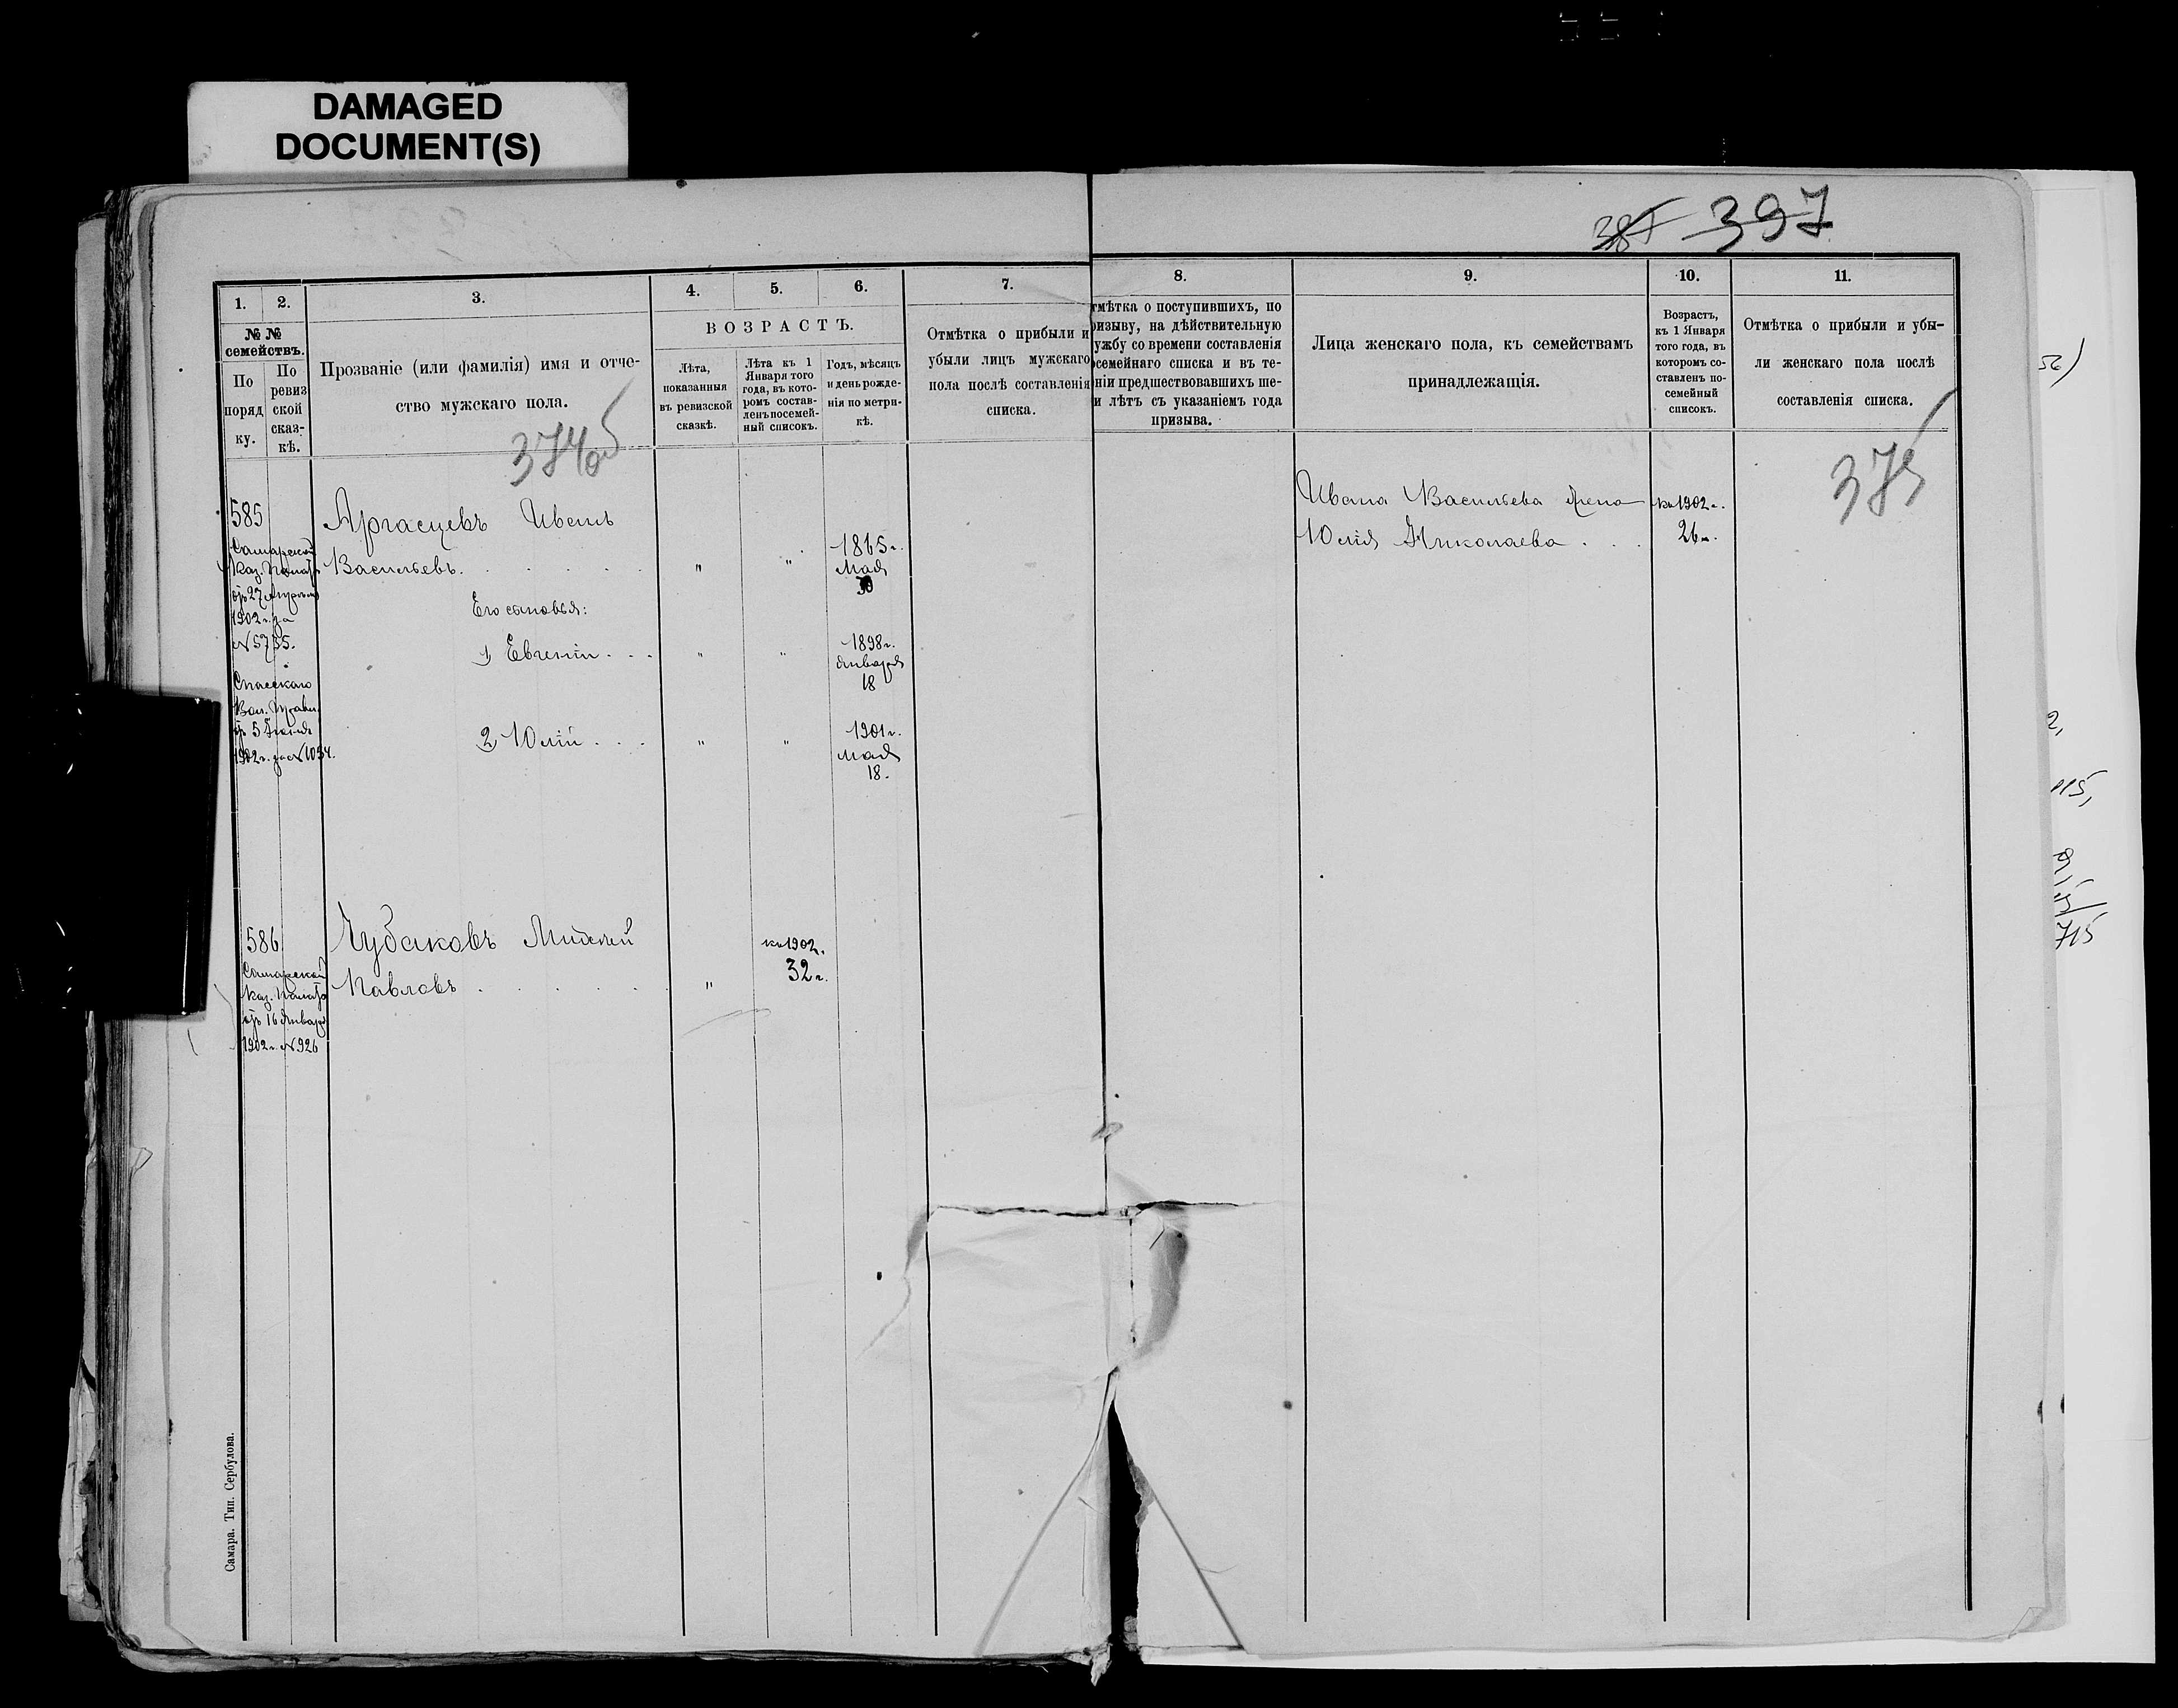 DAMAGED
DOCUMENT(S)
397
1. 2. 3. 4. 5. 6. 7. 8. 9. 10. 11.
№ №
семействъ.
По
поряд
ку.
По
ревиз
ской
сказ-
кѣ.
Прозваніе (или фамилія) имя и отче-
ство мужскаго пола.
374об
ВОЗРАСТЪ.
Лѣта,
показанныя
въ ревизской
сказкѣ.
Лѣта къ 1
Января того
года, въ кото-
ромъ состав-
ленъ посемей-
ный списокъ.
Годъ, мѣсяцъ
и день рожде-
нія по метри-
кѣ.
Отмѣтка о прибыли и
убыли лицъ мужскаго
пола послѣ составленія
списка.
тмѣтка о поступившихъ, по
ризыву, на дѣйствительную
ужбу со времени составленія
осемейнаго списка и въ те-
ніи предшествовавшихъ ше-
и лѣтъ съ указаніемъ года
призыва.
Лица женскаго пола, къ семействамъ
принадлежащія.
Возрастъ,
къ 1 Января
того года, въ
которомъ со-
ставленъ по-
семейный
списокъ.
Отмѣтка о прибыли и убы-
ли женскаго пола послѣ
составленія списка.
375
585
Самарской
Каз. Палаты
отъ 27 Апрѣля
1902 г. за
№ 5735.
Спасскаго
Вол. Правл.
1902 г. за № 1054.
Иванъ
Васильевъ
" " 1865 г.
Мая
30
Его сыновья:
1) Евгеній . . . " " 1898 г.
Января
18
2) Юлій . . . " " 1901 г.
Мая
18.
Ивана Васильева жена
Юлія Николаева . . .
къ 1902 г.
26 л.
586
Самарской
Каз. Палаты
отъ 16 Января
1902 г. № 926
Чубаковъ
Павловъ . . . . . . "
къ 1902 г.
32 г.
Самара. Тип. Сербулова.
56)
2,
115,
715